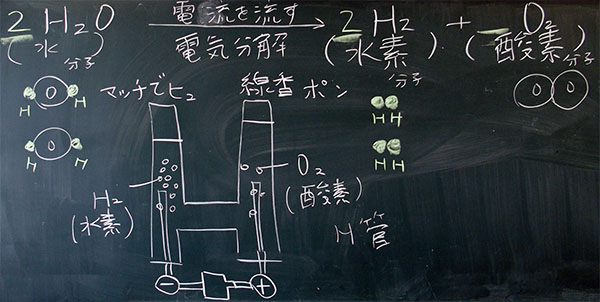 2 H₂O 電流を流す 2 H₂ + O₂
(水分子) 電気分解 (水素分子) (酸素分子)
H O H
マッチでH₂ 線香 ポン
H H
H O H
H H
O₂
(酸素)
H₂
(水素)
H管
− +